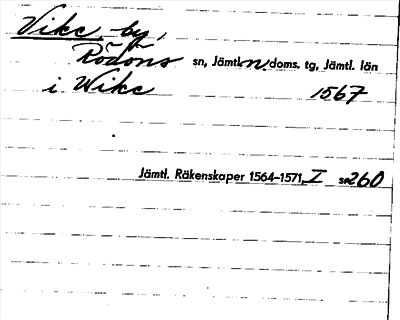 Vike, by,
Rödöns sn, Jämtl. n. doms. tg, Jämtl. län
i Wike 1567
Jämtl. Räkenskaper 1564-1571, I s. 260